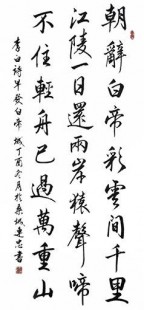 朝辭白帝彩雲間千里
江陵一日還兩岸猿聲啼
不住輕舟已過萬重山
李白詩早發白帝城丁酉冬月於桑城連忠書